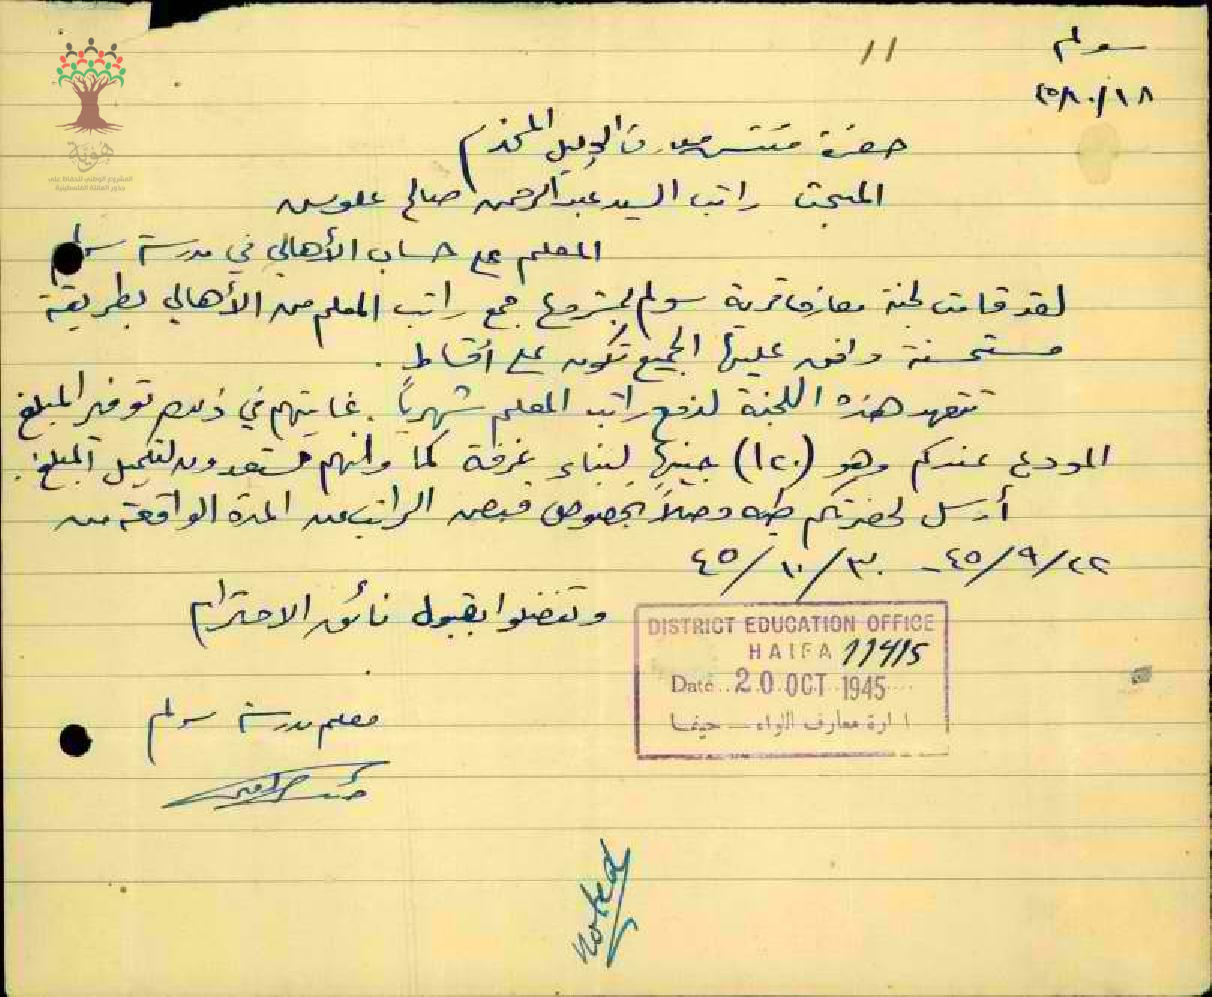 سولم
١١
٤٥/١٠/١٨
حضرة مفتش معارف الجليل المحترم
المبحث راتب السيد عبد الرحمن صالح
المعلم على حساب الأهالي في مدرسة سولم
لقد قامت لجنة معارف قرية سولم بمشروع جمع راتب المعلم من الأهالي بطريقة
مستحسنة وافق عليها الجميع تكون على أقساط .
تتعهد هذه اللجنة لدفع راتب المعلم شهرياً . غايتهم في ذلك توفير المبلغ
المودع عندكم وهو (١٢٠) جنيهاً لبناء غرفة كما وانهم مستعدون لتكميل المبلغ .
أرسل لحضرتكم طيه وصلاً بخصوص قبض الراتب عن المدة الواقعة من
٤٥/٩/٢٢ - ٤٥/١٠/٣٠
وتفضلوا بقبول فائق الاحترام
DISTRICT EDUCATION OFFICE
HAIFA 11415
Date 20 OCT 1945
ادارة معارف اللواء – حيفا
معلم مدرسة سولم
noted
هوية
المشروع الوطني للحفاظ على
جذور العائلة الفلسطينية